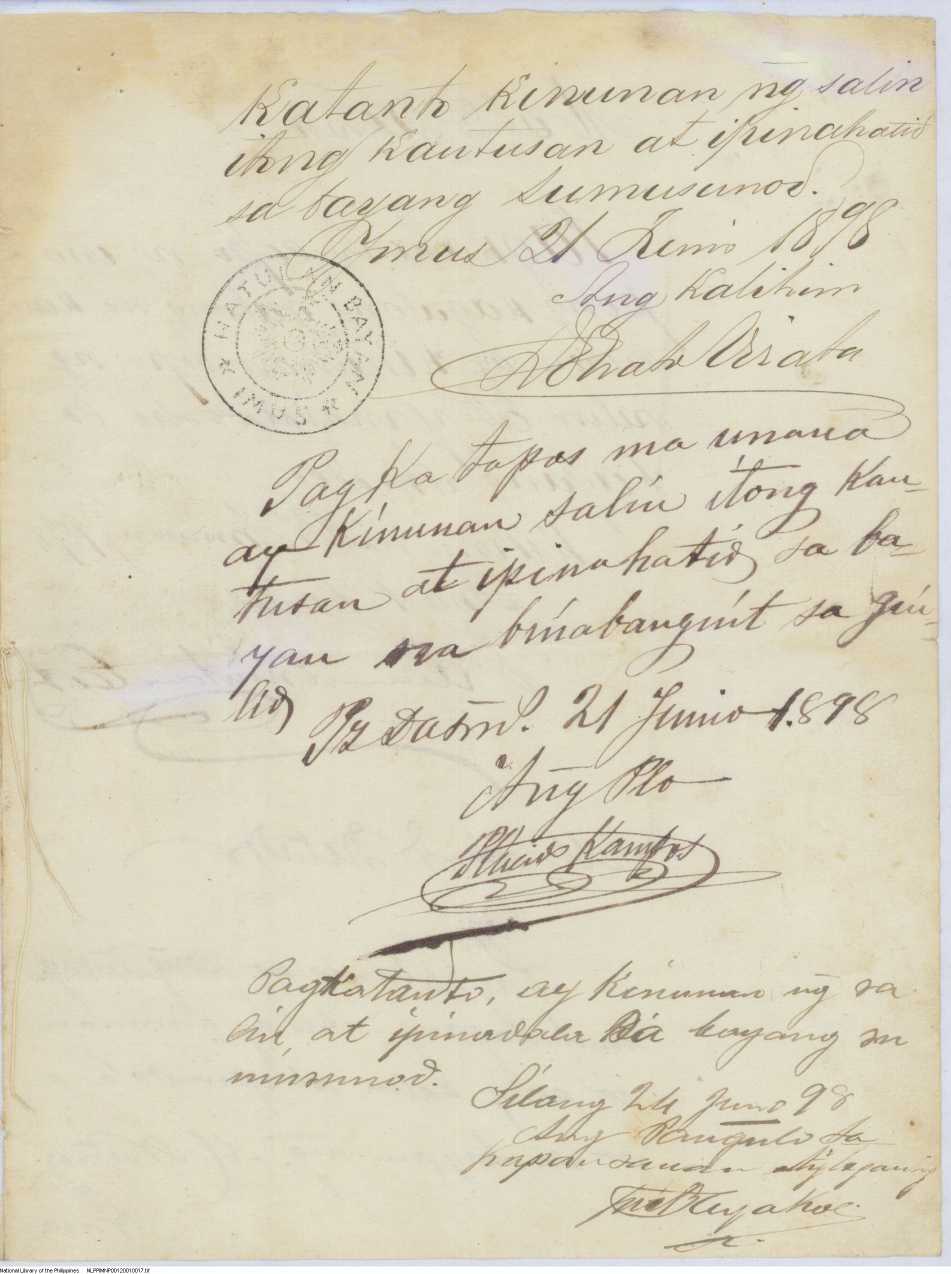 Katanto kinunan ng salin
itong kautusan at ipinahatid
sa bayang sumusunod.
Ymus 21 Junio 1898
Ang Kalihim
Virata
HATUKAN BAYAN
IMUS
Pagka tapos ma unaua
ay kinunan salin itong kau-
tusan at ipinahatid sa ba-
yan na binabanguit sa giu-
lid
Pz Dasmd. 21 Junio 1898
Ang Plo
Placido Kampos
Pagkatanto, ay kinunan ng sa
lin, at ipinadala sa bayang su
musunod.
Silang 24 Junio 98
Ang Pangulo sa
National Library of the Philippines NLPPIMNP00120010017.tif